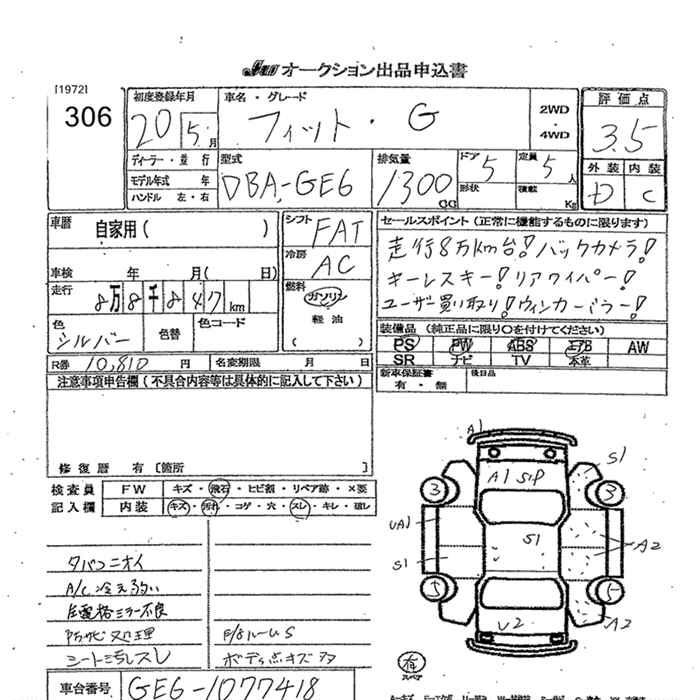 JAA オークション出品申込書
[1972]
306
初度登録年月
20 5 月
車名・グレード
フィット・G
2WD
・
4WD
評価点
3.5
外装 内装
D C
ディーラー・並行
モデル年式 年
ハンドル 左・右
型式
DBA-GE6
排気量
1300 CC
ドア 5
形状
定員 5 人
積載 Kg
車歴 自家用( )
車検 年 月( 日)
走行 8万8千847km
色 シルバー
色替
色コード
シフト FAT
冷房 AC
燃料
ガソリン
軽油
( )
セールスポイント(正常に機能するものに限ります)
走行8万km台!バックカメラ!
キーレスキー!リアワイパー!
ユーザー買い取り!ウィンカーミラー!
装備品(純正品に限り○を付けてください)
PS PW ABS エアB AW
SR ナビ TV 本革
新車保証書
有・無
後日品
R券 10,810 円
名変期限 月 日
注意事項申告欄(不具合内容等は具体的に記入して下さい)
修復歴 有〔箇所 〕
検査員
記入欄
FW キズ・飛石・ヒビ割・リペア跡・×要
内装 キズ・汚れ・コゲ・穴・スレ・キレ・
タバコニオイ
A/C 冷え弱い
電格ミラー不良
防サビ処理
シート汚レスレ
F/Bルーム S
ボディ点キズ多
車台番号 GE6-1077418
A1
A1 S1P
S1
3
3
UA1
S1
S1
A2
5
5
A2
U2
有
スペア